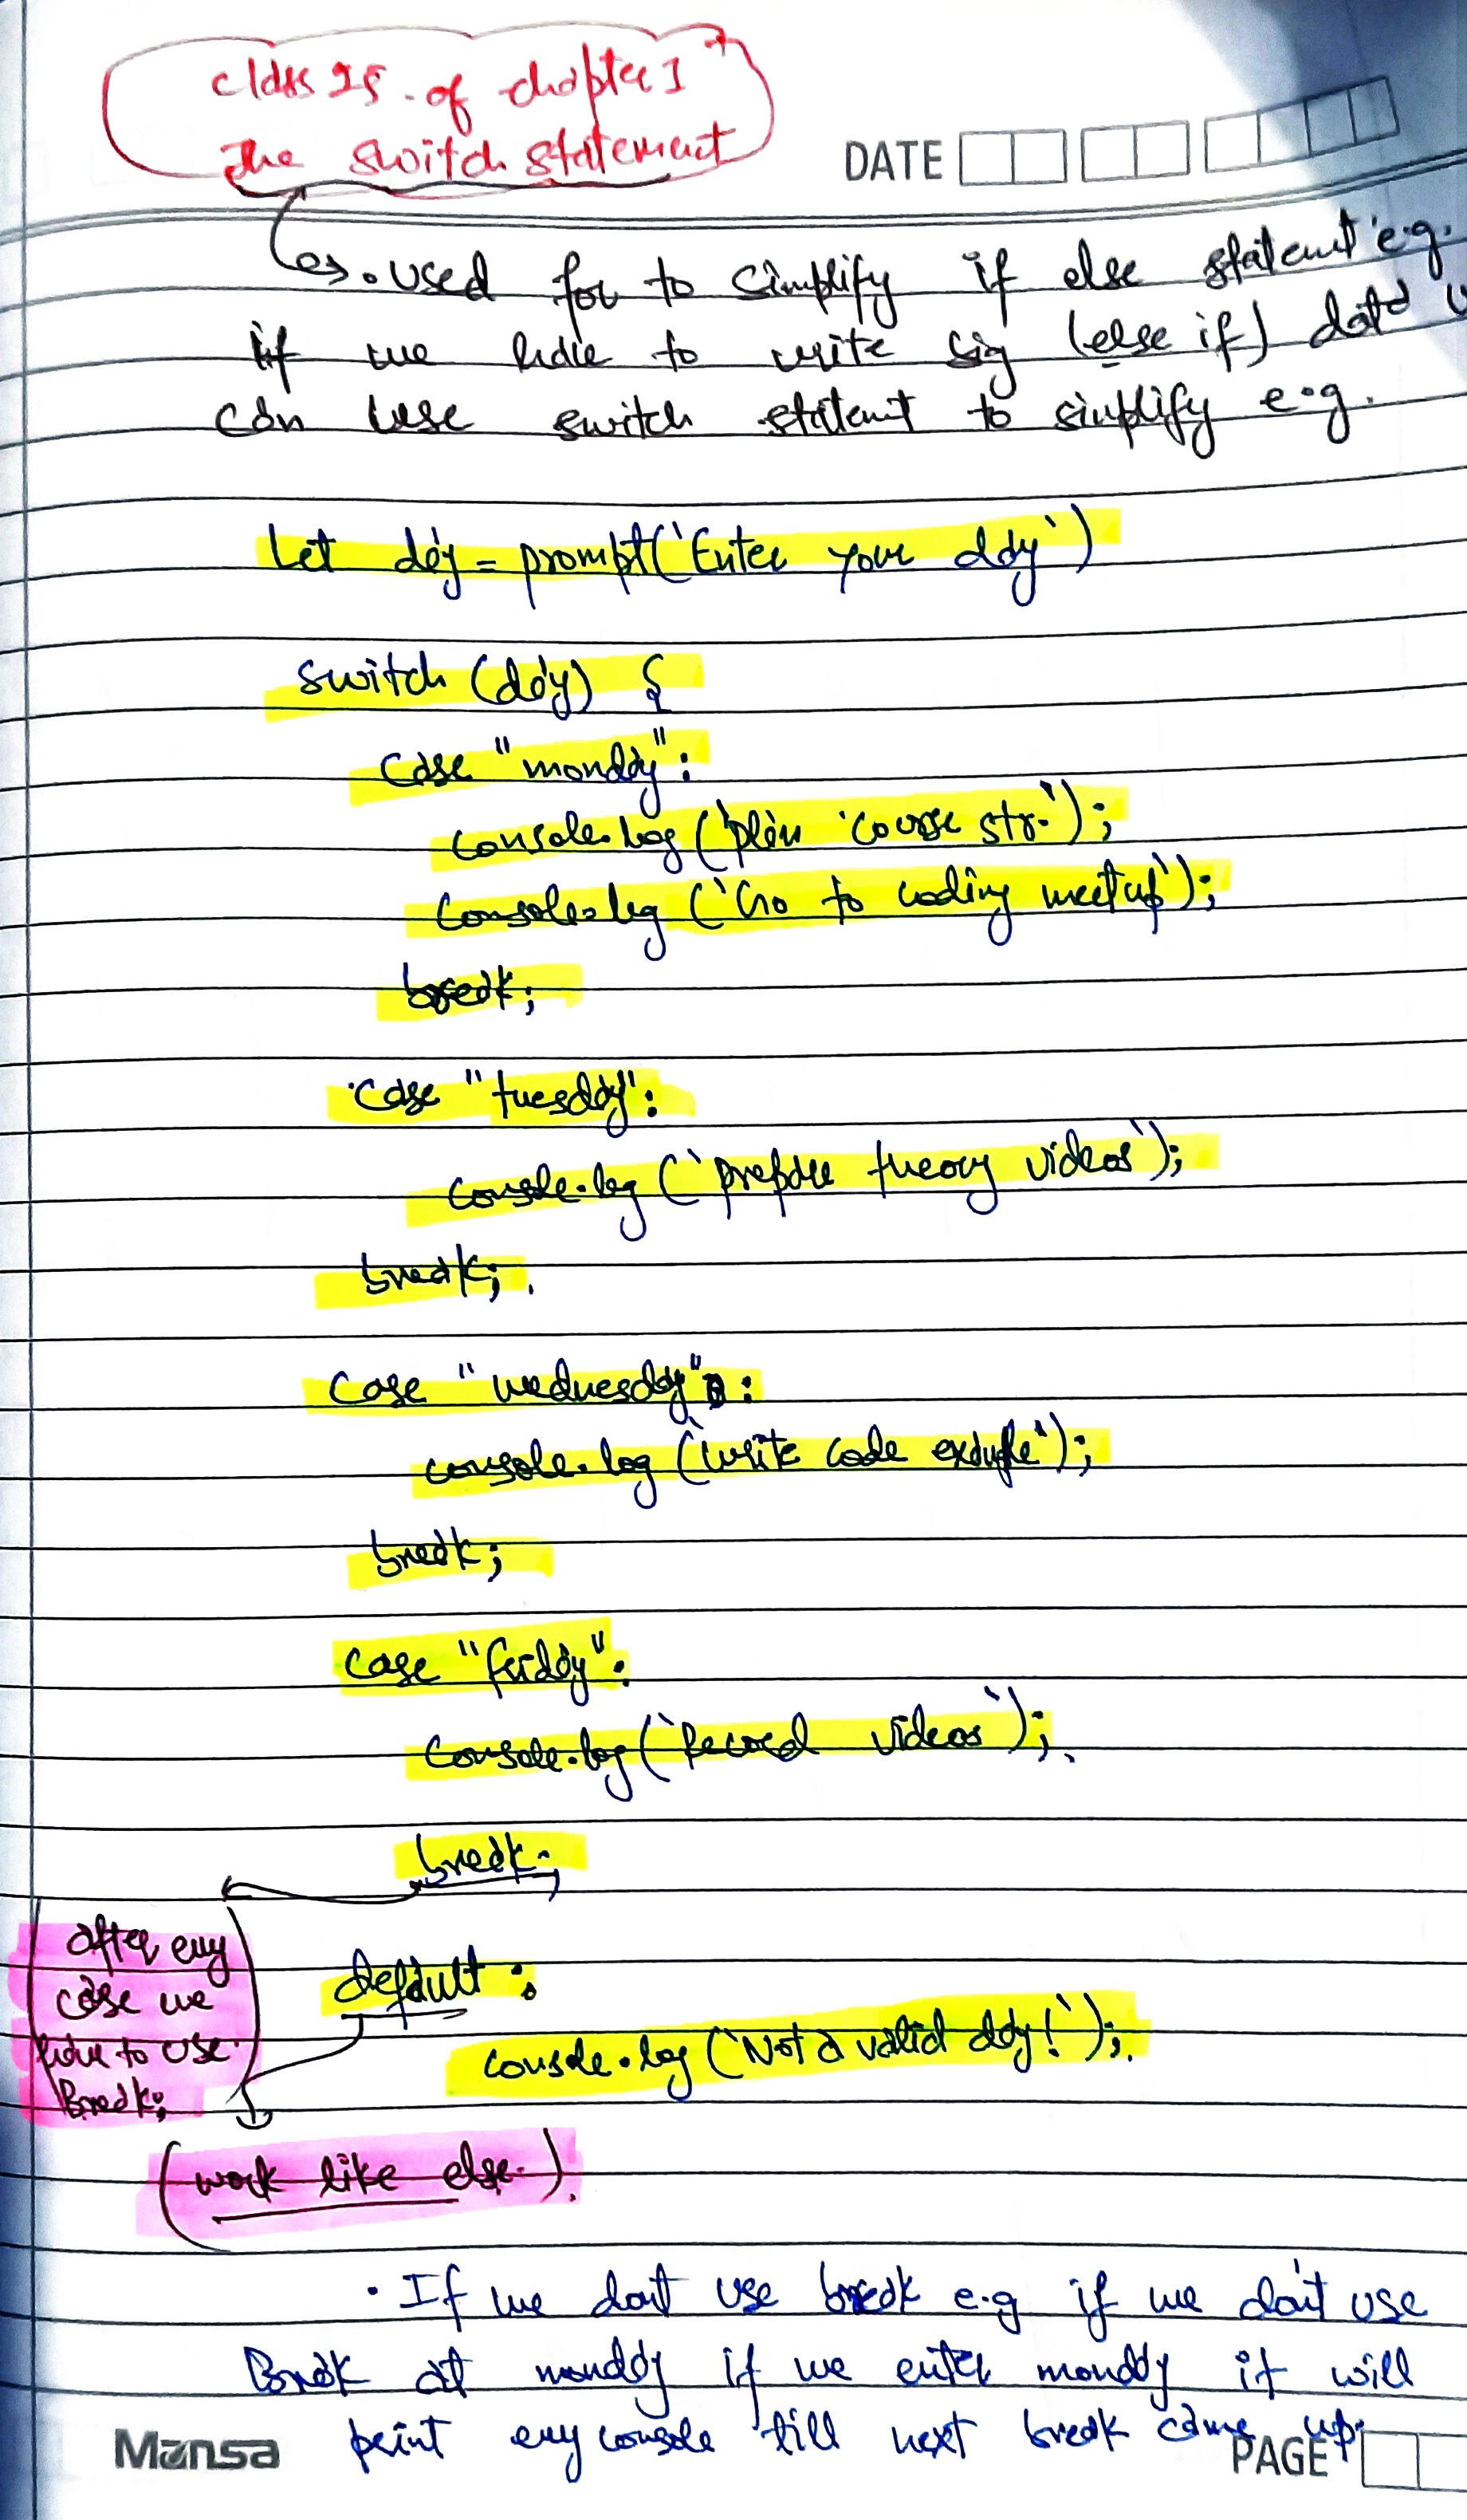 class 25. of chapter 1
The switch statement
DATE
. used for to simplify if else statemt e.g.
if we have to write big (else if) data
can use switch statemt to simplify e.g.
Let day = prompt(`Enter your day`)
switch (day) {
case "monday":
console.log (`plan course str.`);
console.log (`Go to coding meetup`);
break;
case "tuesday":
console.log (`prepare theory videos`);
break;
case "wednesday":
console.log (`write code example`);
break;
case "friday":
console.log (`Record videos`);
break;
after evry
case we
have to use
Break;
default :
console.log (`Not a valid day!`);
(work like else.)
. If we don't use break e.g if we don't use
Break at monday if we enter monday it will
print evry console till next break came up.
Mansa
PAGE